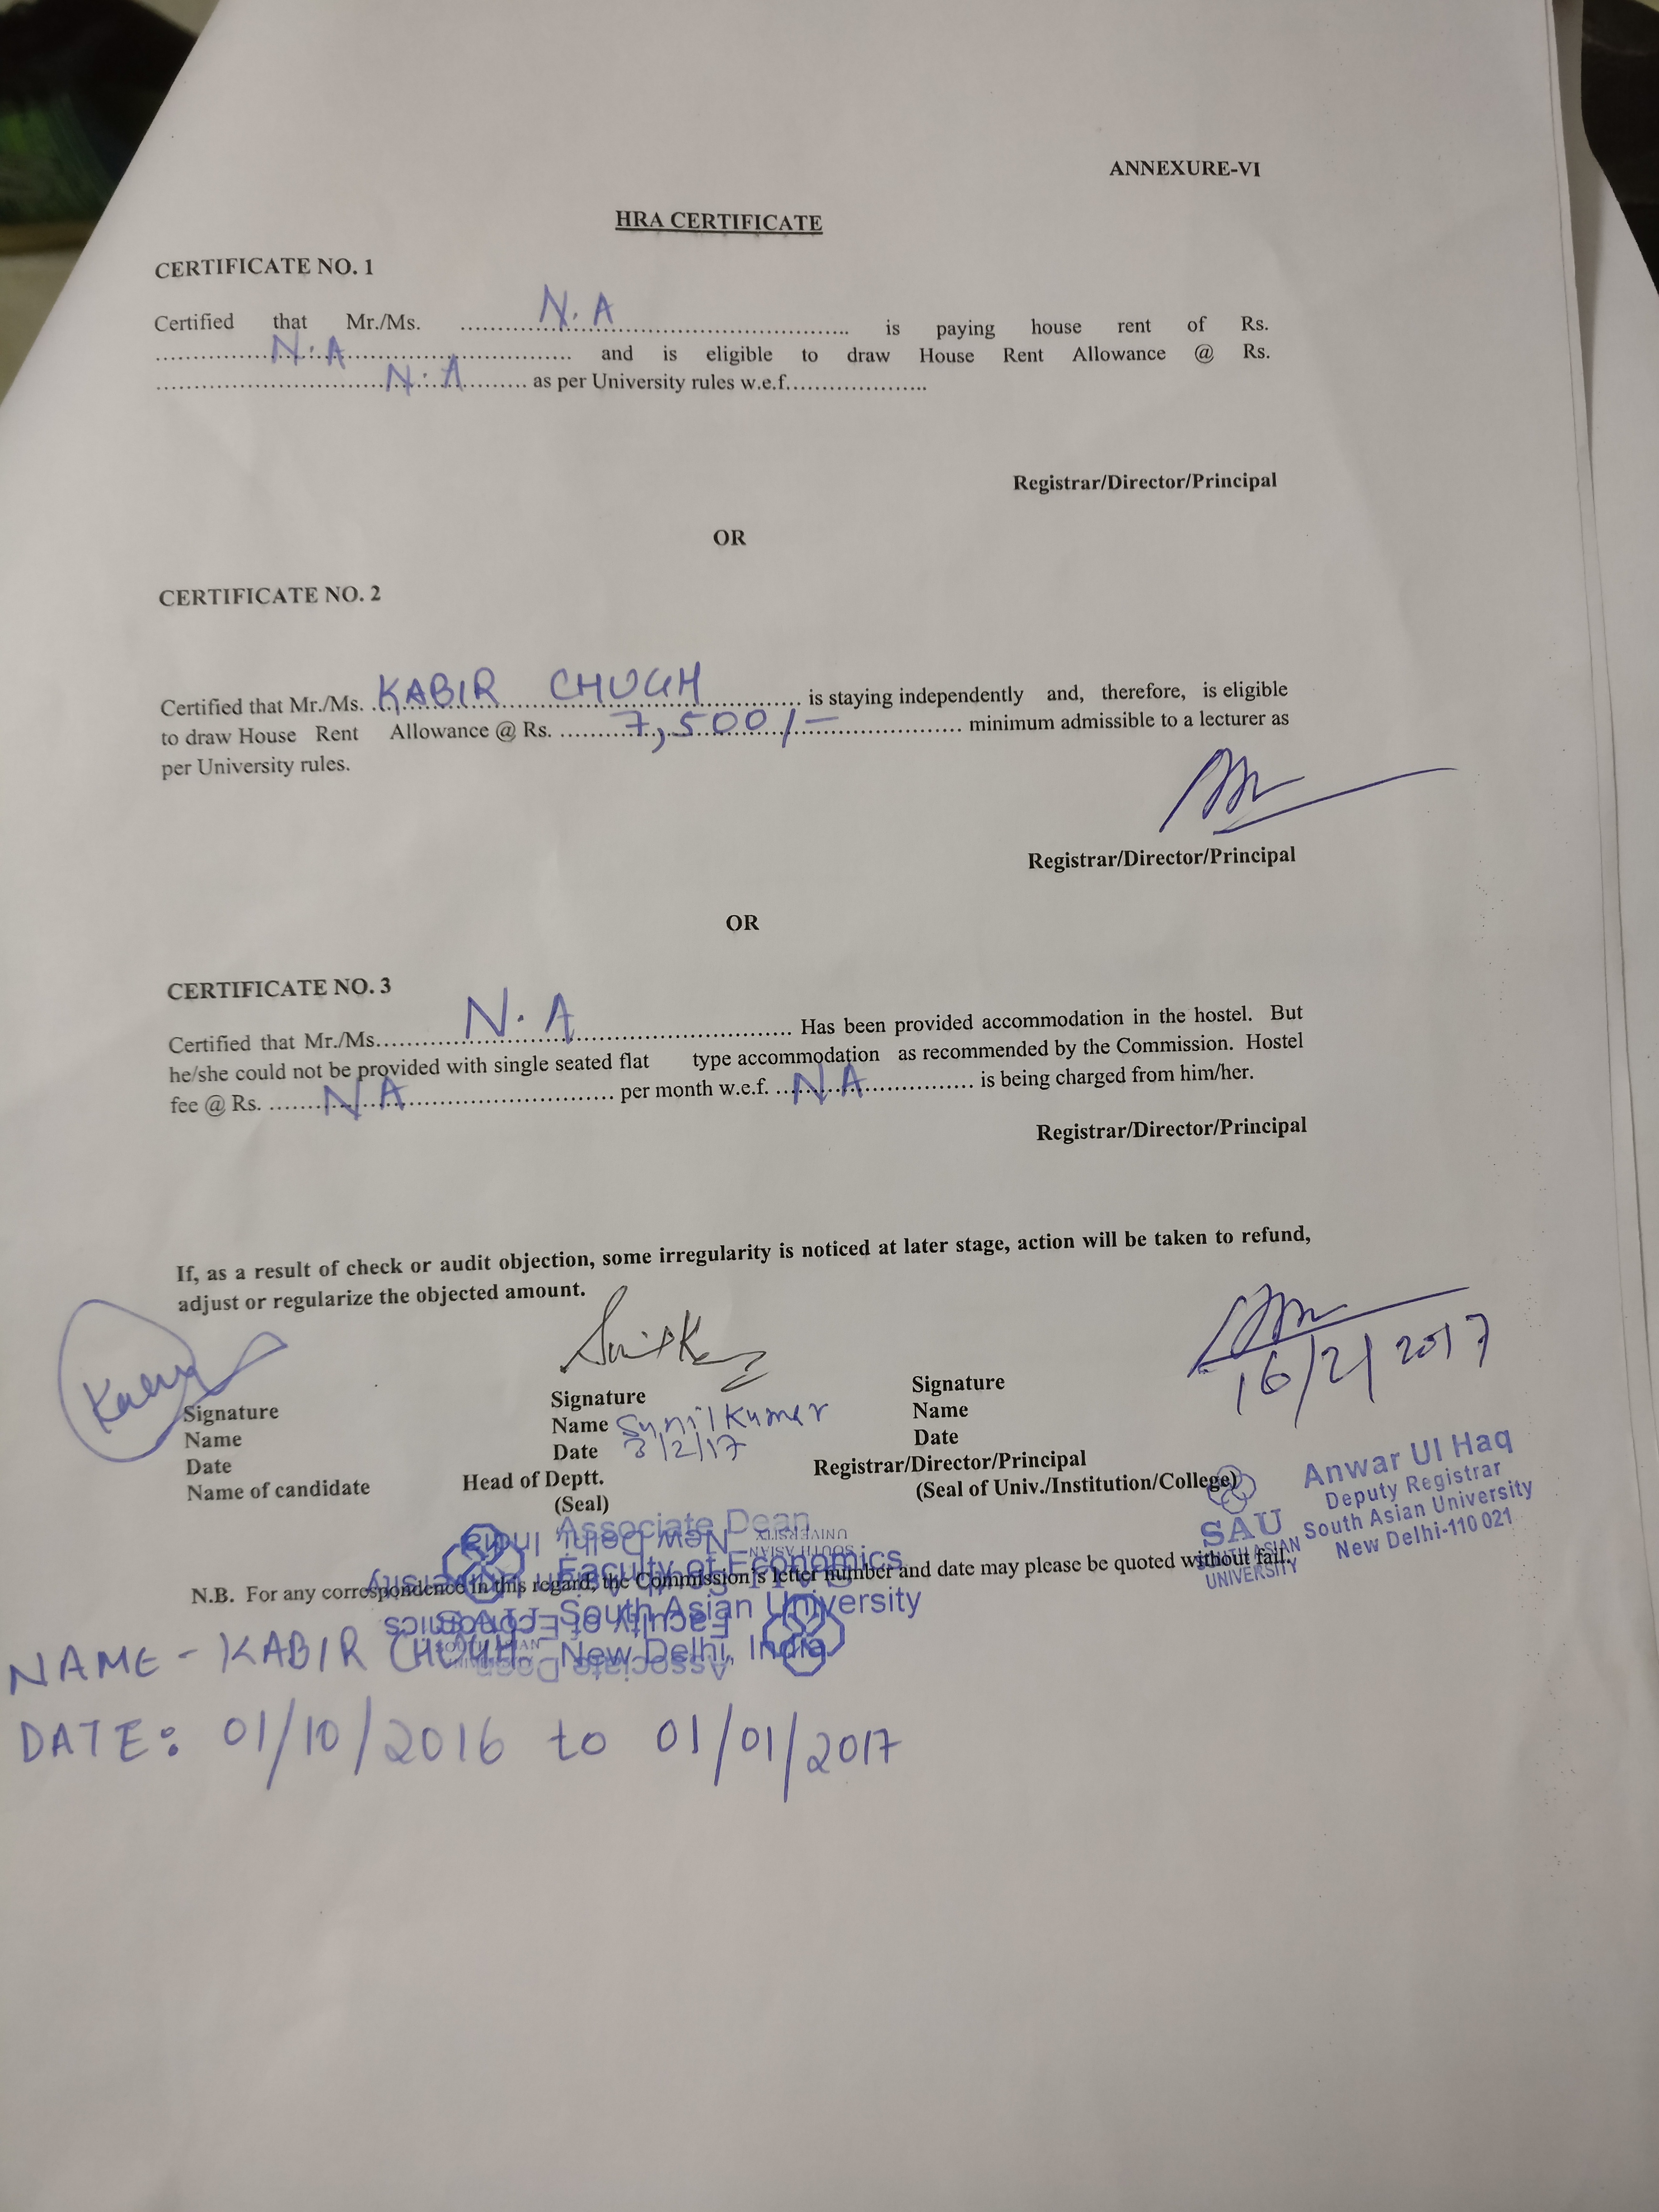 ANNEXURE-VI
HRA CERTIFICATE
CERTIFICATE NO. 1
Certified that Mr./Ms. ......N.A...... is paying house rent of Rs.
......N.A...... and is eligible to draw House Rent Allowance @ Rs.
......N.A...... as per University rules w.e.f....................
Registrar/Director/Principal
OR
CERTIFICATE NO. 2
Certified that Mr./Ms. ..KABIR CHUGH...... is staying independently and, therefore, is eligible
to draw House Rent Allowance @ Rs. ......7,500/-...... minimum admissible to a lecturer as
per University rules.
Registrar/Director/Principal
OR
CERTIFICATE NO. 3
Certified that Mr./Ms......N.A...... Has been provided accommodation in the hostel. But
he/she could not be provided with single seated flat type accommodation as recommended by the Commission. Hostel
fee @ Rs. ......NA...... per month w.e.f. ..NA...... is being charged from him/her.
Registrar/Director/Principal
If, as a result of check or audit objection, some irregularity is noticed at later stage, action will be taken to refund,
adjust or regularize the objected amount.
16/2/2017
Signature
Name
Date
Name of candidate
Signature
Name Sunil Kumar
Date 3/2/17
Head of Deptt.
(Seal)
Signature
Name
Date
Registrar/Director/Principal
(Seal of Univ./Institution/College)
Anwar Ul Haq
Deputy Registrar
South Asian University
New Delhi-110 021
SAU
SOUTH ASIAN
UNIVERSITY
Associate Dean
Faculty of Economics
South Asian University
New Delhi, India
N.B. For any correspondence in this regard, the Commission's letter number and date may please be quoted without fail.
NAME - KABIR CHUGH
DATE: 01/10/2016 to 01/01/2017